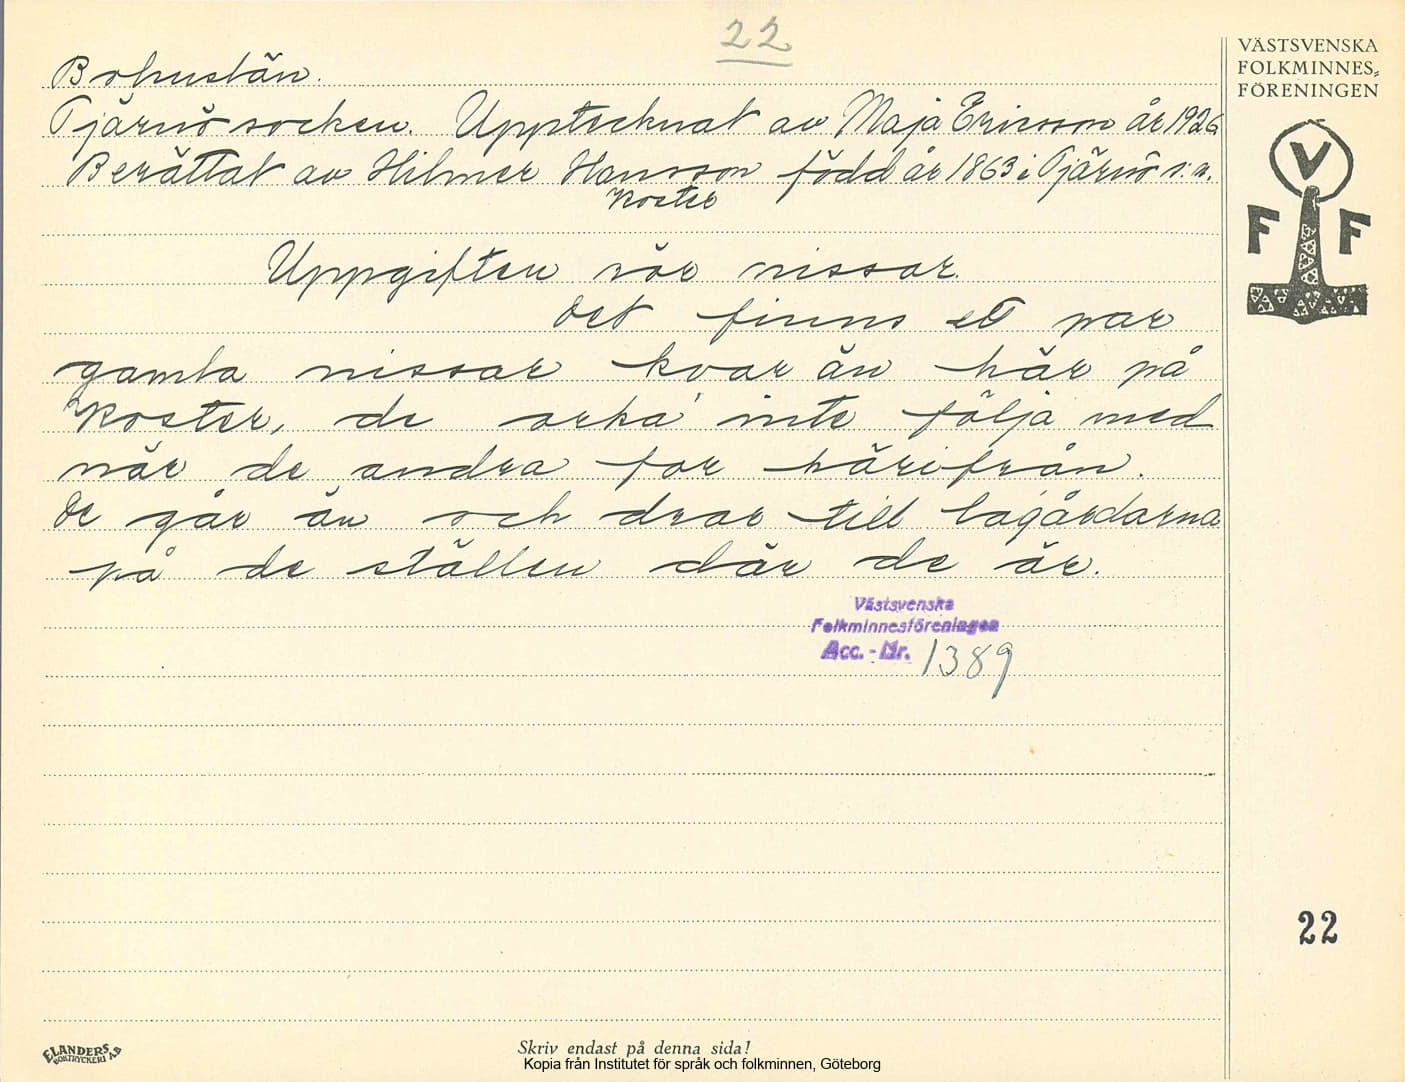 22
VÄSTSVENSKA
FOLKMINNES-
FÖRENINGEN
V
F F
Bohuslän.
Tjärnö socken. Upptecknat av Maja Ericsson år 1926
Berättat av Hilmer Hansson född år 1863 i Tjärnö s:n.
Koster
Uppgiften rör nissar.
Det finns ett par
gamla nissar kvar än här på
Koster, de orka' inte följa med
när de andra for härifrån.
De går än och drar till lagårdarna
på de ställen där de är.
Västsvenska
Folkminnesföreningen
Acc.-Nr. 1389
22
ELANDERS
BOKTRYCKERI AB
Skriv endast på denna sida!
Kopia från Institutet för språk och folkminnen, Göteborg